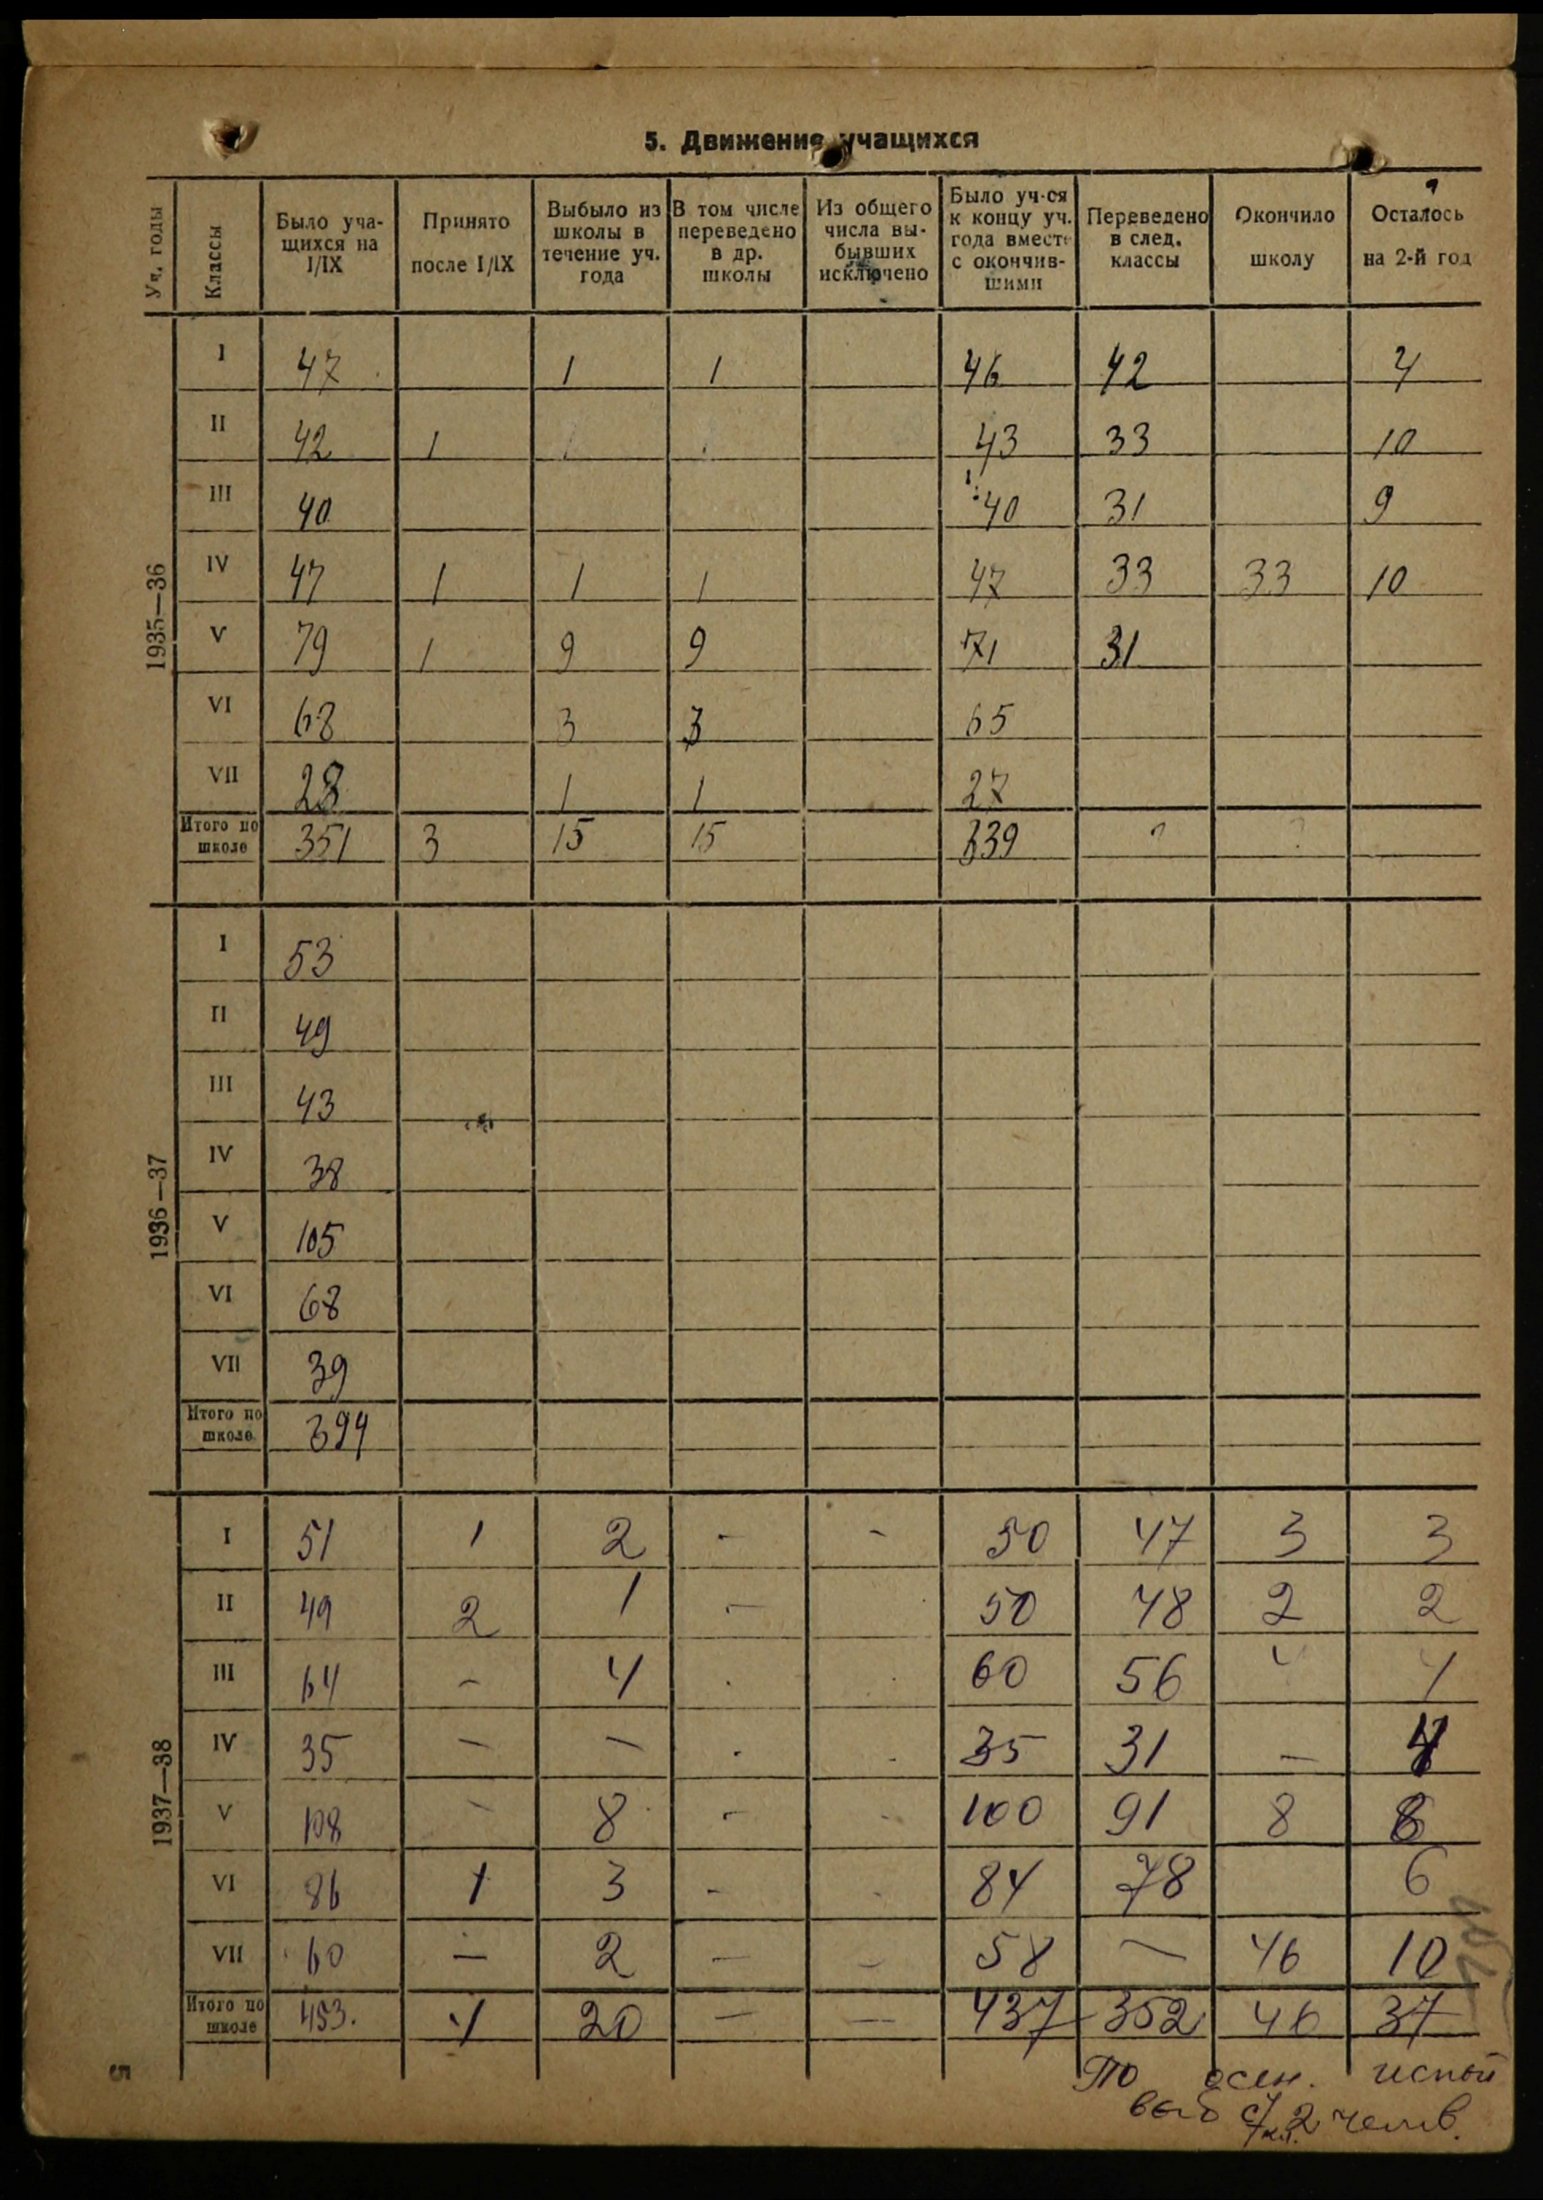 5. Движение учащихся
Уч. годы | Классы | Было уча-щихся на I/IX | Принято после I/IX | Выбыло из школы в течение уч. года | В том числе переведено в др. школы | Из общего числа вы-бывших исключено | Было уч-ся к концу уч. года вместе с окончив-шими | Переведено в след. классы | Окончило школу | Осталось на 2-й год
1935—36
I 47 1 1 46 42 4
II 42 1 43 33 10
III 40 40 31 9
IV 47 1 1 1 47 33 33 10
V 79 1 9 9 71 31
VI 68 3 3 65
VII 28 1 1 27
Итого по школе 351 3 15 15 339 ? ?
1936—37
I 53
II 49
III 43
IV 38
V 105
VI 68
VII 39
Итого по школе 394
1937—38
I 51 1 2 - - 50 47 3 3
II 49 2 1 - 50 48 2 2
III 64 - 4 60 56 4 4
IV 35 - - 35 31 - 4
V 108 - 8 - - 100 91 8 8
VI 86 1 3 - - 84 78 6
VII 60 - 2 - - 58 - 46 10
Итого по школе 453. 4 20 - - 437 352 46 37
По осен. испыт
выб с 7 кл. 2 челов.
5